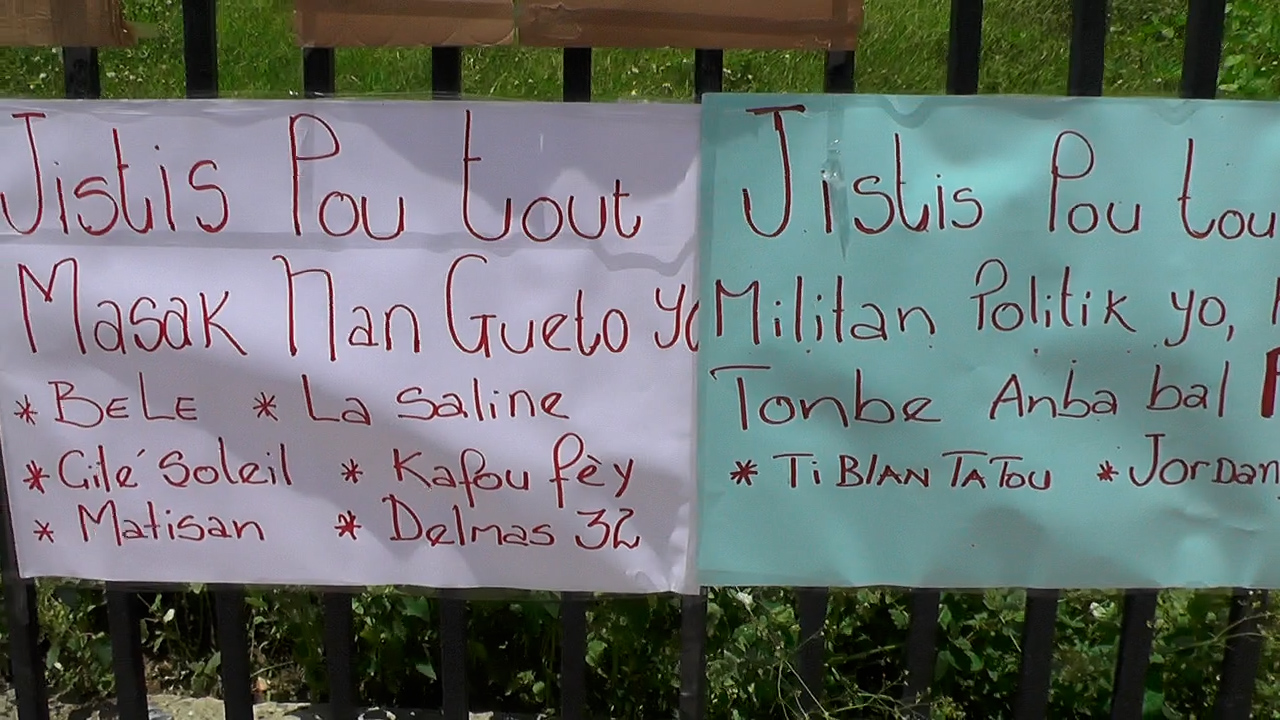 Jistis Pou tout
Masak Nan Gueto yo
* BELE * La Saline
* Cité Soleil * Kafou fèy
* Matisan * Delmas 32
Jistis Pou tou
Militan Politik yo,
Tonbe Anba bal
* Ti BlAN TATOU * Jordan